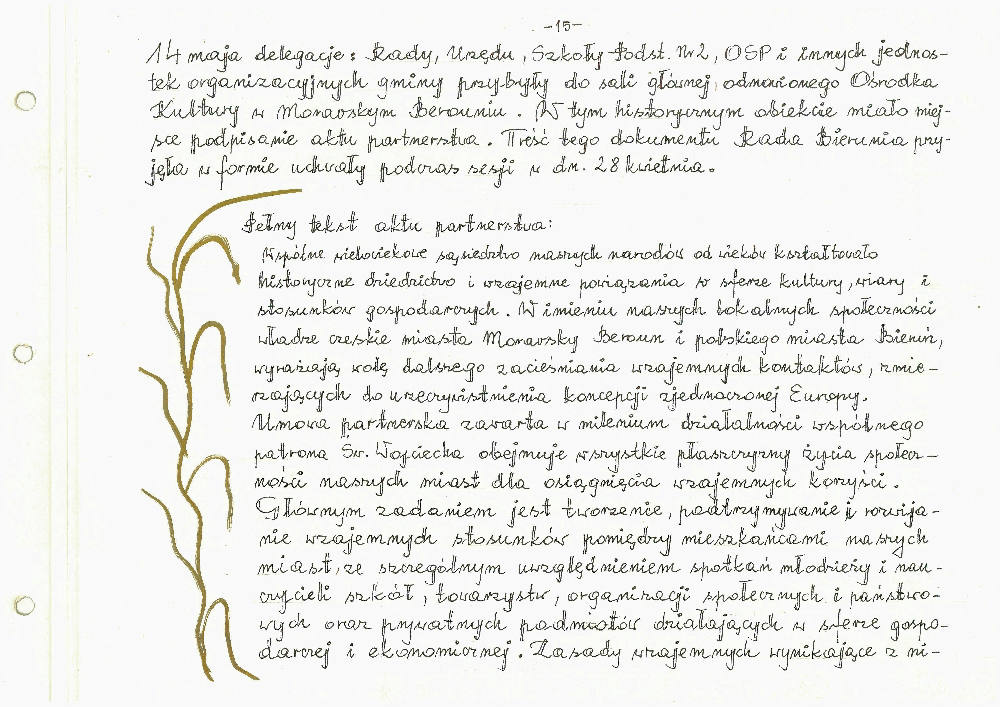 -15-
14 maja delegacje: Rady, Urzędu, Szkoły Podst. Nr 2, OSP i innych jednos-
tek organizacyjnych gminy przybyły do sali głównej odnowionego Ośrodka
Kultury w Moravskym Berouniu. W tym historycznym obiekcie miało miej-
sce podpisanie aktu partnerstwa. Treść tego dokumentu Rada Bierunia przy-
jęła w formie uchwały podczas sesji w dn. 28 kwietnia.
Pełny tekst aktu partnerstwa:
Wspólne wielowiekowe sąsiedztwo naszych narodów od wieków kształtowało
historyczne dziedzictwo i wzajemne powiązania w sferze kultury, wiary i
stosunków gospodarczych. W imieniu naszych lokalnych społeczności
władze czeskie miasta Moravsky Beroun i polskiego miasta Bieruń,
wyrażają wolę dalszego zacieśniania wzajemnych kontaktów, zmie-
rzających do urzeczywistnienia koncepcji zjednoczonej Europy.
Umowa partnerska zawarta w milenium działalności wspólnego
patrona Św. Wojciecha obejmuje wszystkie płaszczyzny życia społecz-
ności naszych miast dla osiągnięcia wzajemnych korzyści.
Głównym zadaniem jest tworzenie, podtrzymywanie i rozwija-
nie wzajemnych stosunków pomiędzy mieszkańcami naszych
miast, ze szczególnym uwzględnieniem spotkań młodzieży i nau-
czycieli szkół, towarzystw, organizacji społecznych i państwo-
wych oraz prywatnych podmiotów działających w sferze gospo-
darczej i ekonomicznej. Zasady wzajemnych wynikające z ni-